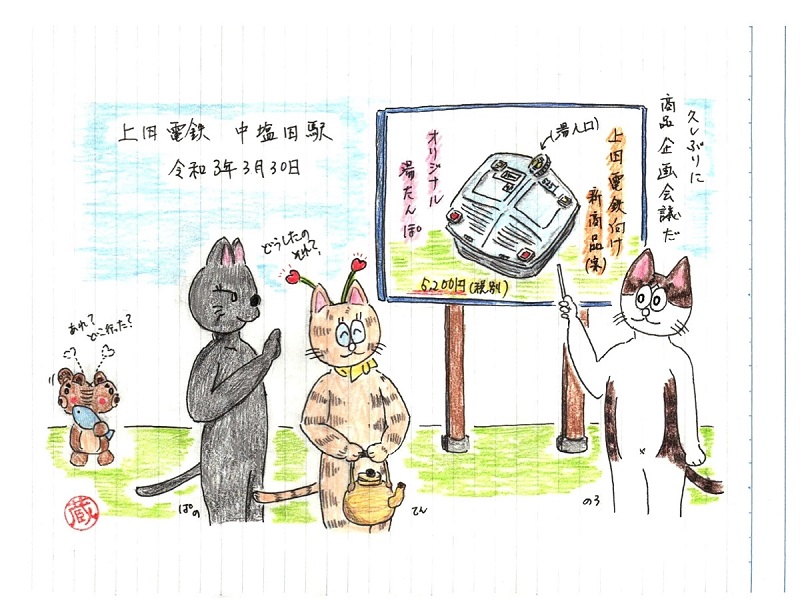 上田電鉄 中塩田駅
令和3年3月30日
久しぶりに
商品企画会議だ
上田電鉄向け
新商品(案)
(湯入口)
オリジナル
湯たんぽ
5,200円(税別)
どうしたの
それ?
あれ?
どこ行った?
ぱの
てん
のろ
蔵